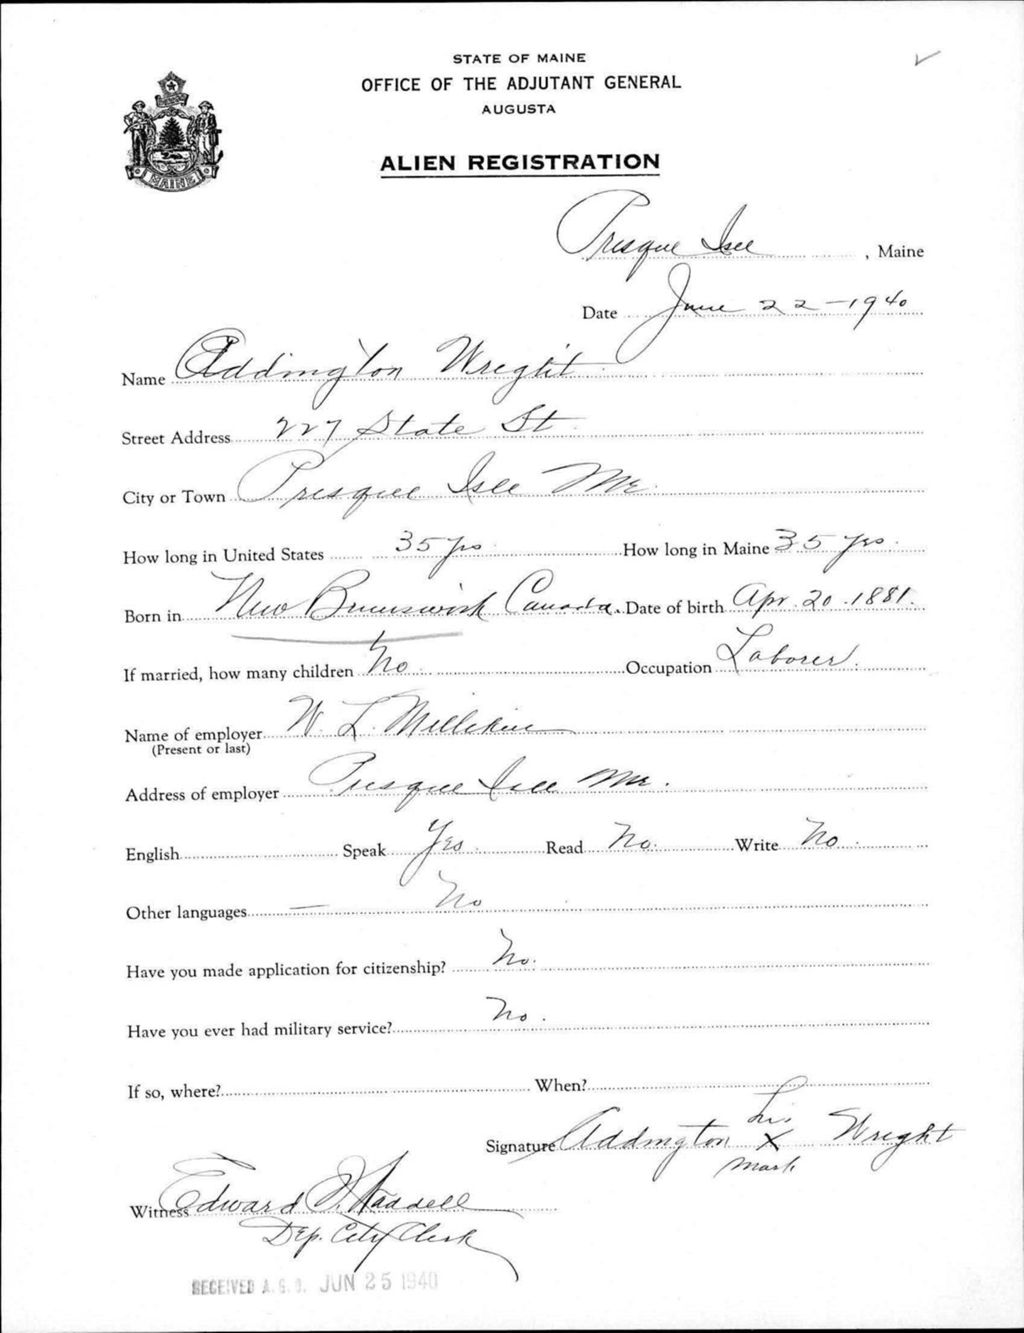 STATE OF MAINE
OFFICE OF THE ADJUTANT GENERAL
AUGUSTA
ALIEN REGISTRATION
MAINE
Presque Isle, Maine
Date June 22-1940
Name Addington Wright
Street Address 227 State St
City or Town Presque Isle Me.
How long in United States 35 yrs How long in Maine 35 yrs.
Born in New Brunswick Canada. Date of birth Apr. 20. 1881.
If married, how many children No. Occupation Laborer.
Name of employer W. L. Milliken
(Present or last)
Address of employer Presque Isle Me.
English Speak Yes. Read No. Write No.
Other languages — No
Have you made application for citizenship? No.
Have you ever had military service? No.
If so, where? When?
his
Signature Addington X Wright
mark
Witness Edward Waddell
Dep. City Clerk
RECEIVED A.G.O. JUN 25 1940